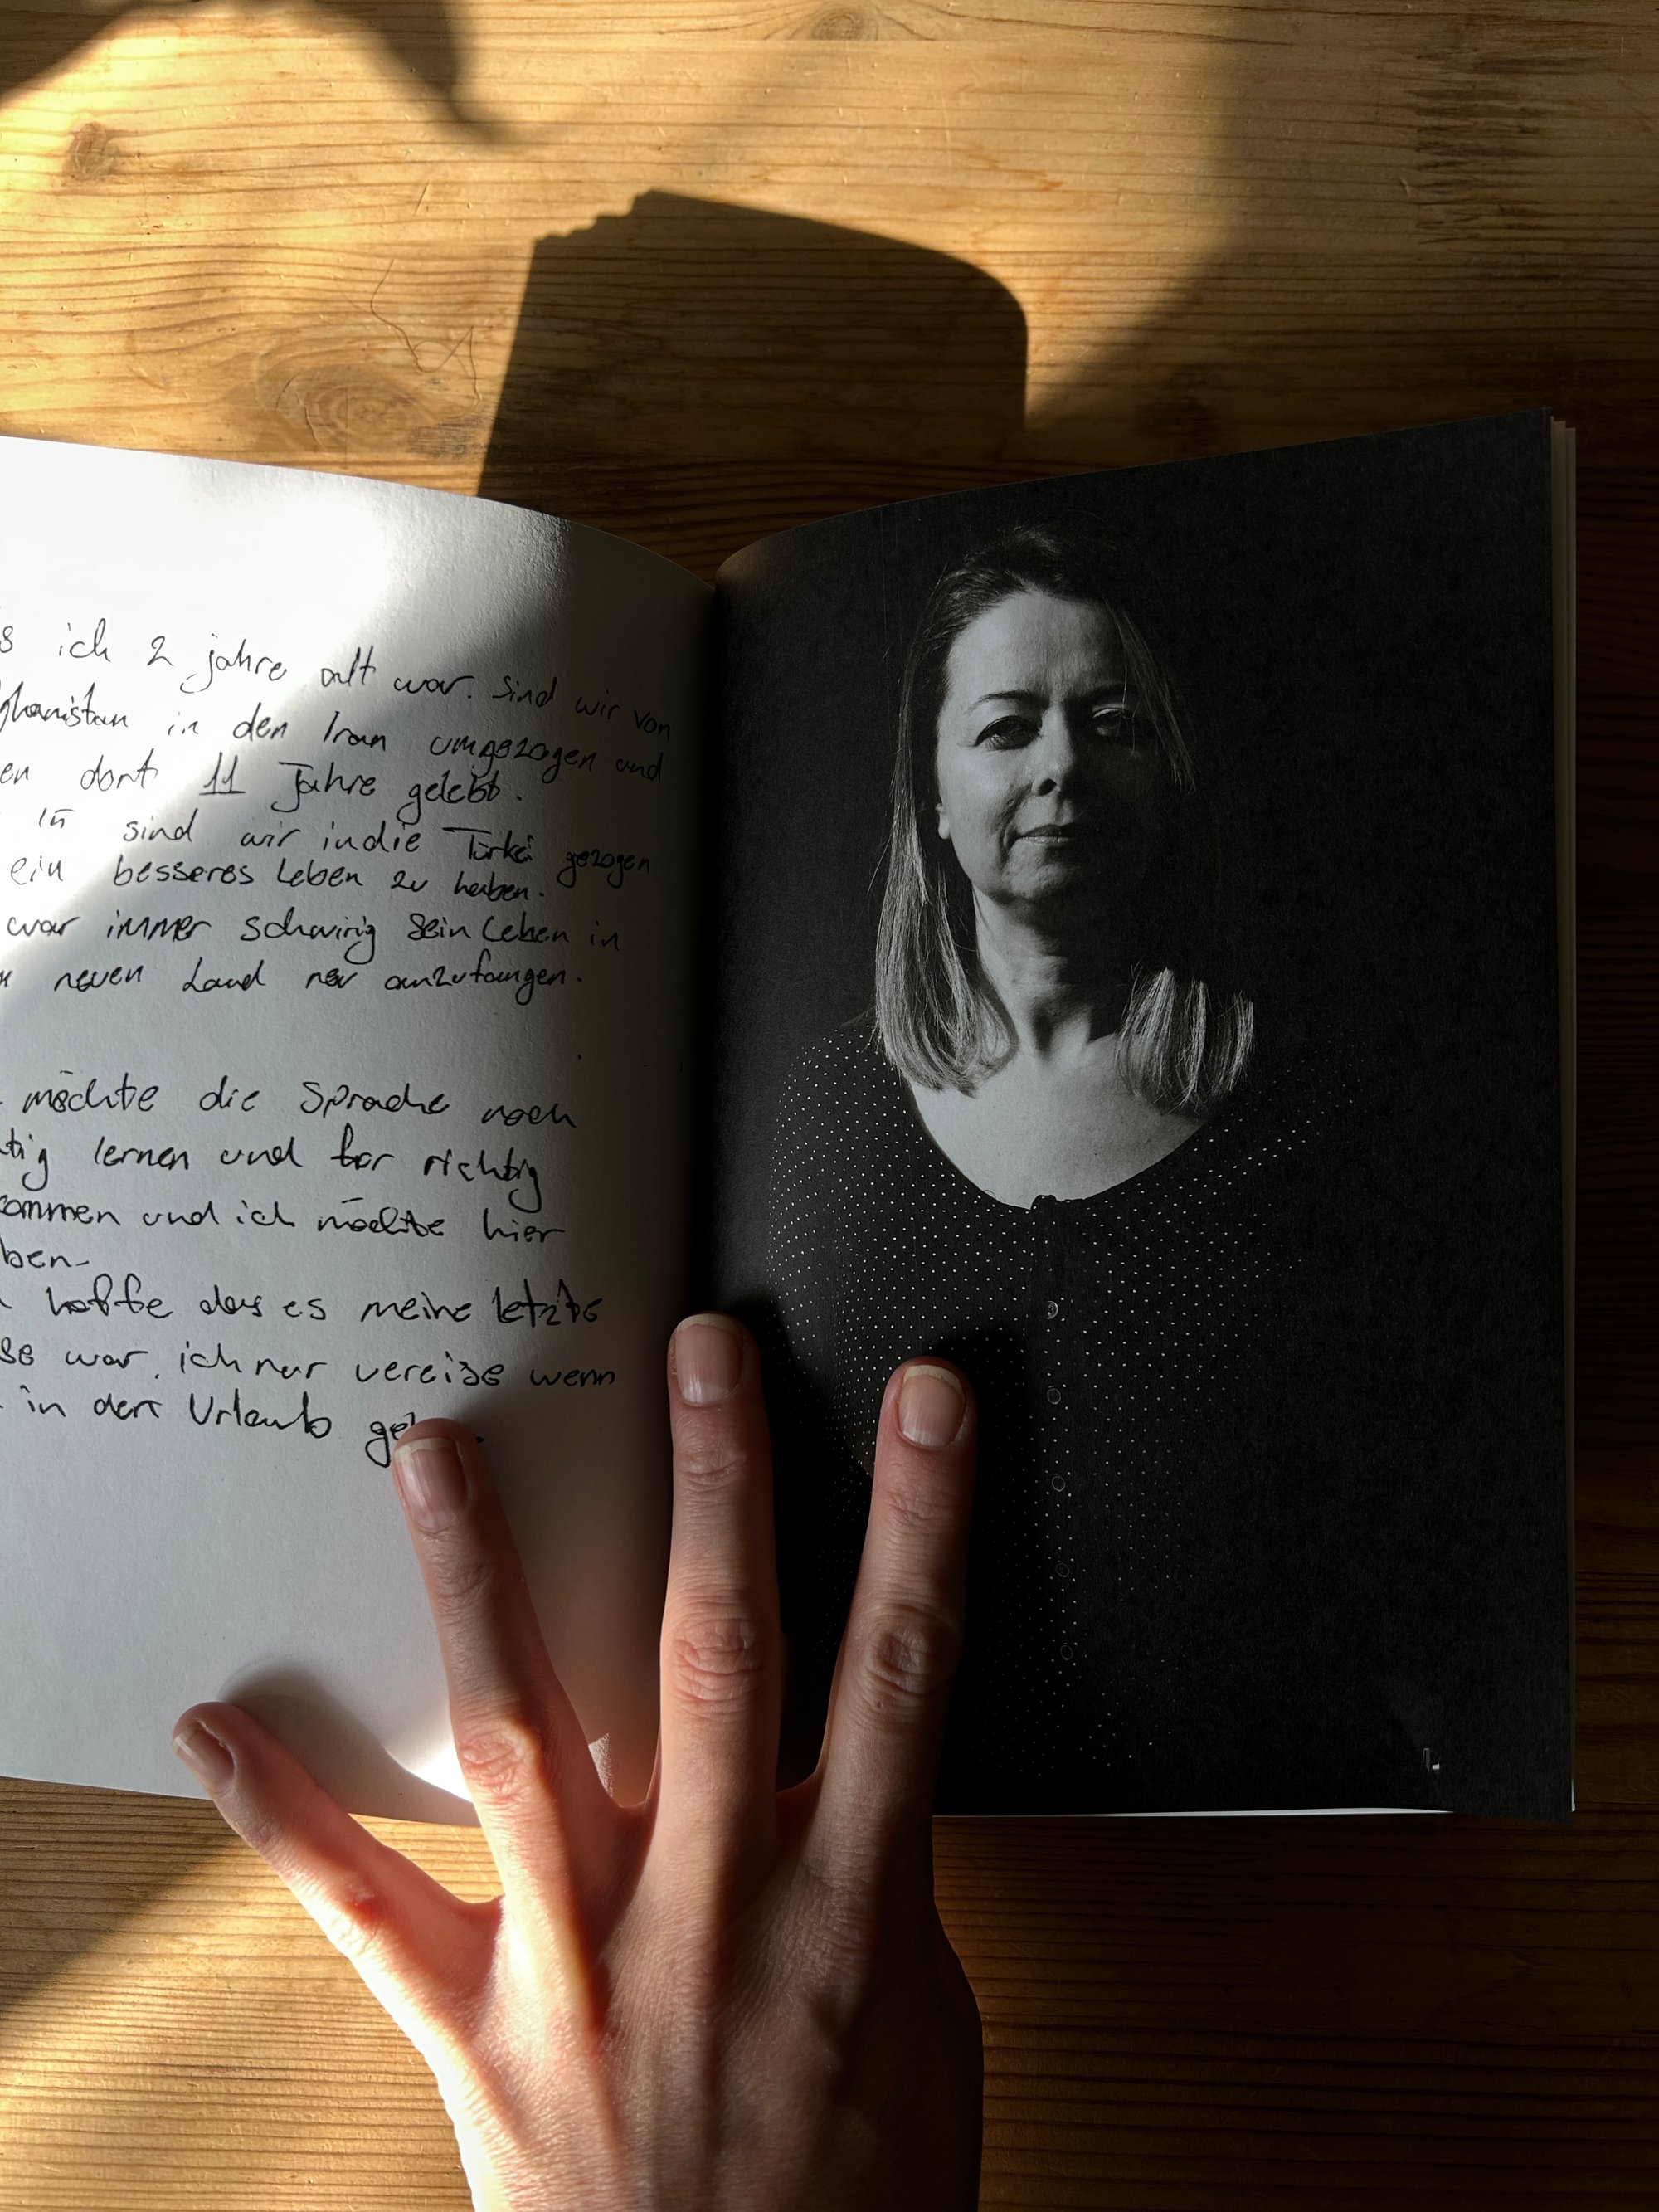 s ich 2 jahre alt war. Sind wir von
ghanistan in den Iran umgezogen und
en dort 11 Jahre gelebt.
sind wir indie Türkei gezogen
ein besseres Leben zu haben.
war immer schwirig sein Leben in
neuen Land neu anzufangen.
möchte die Sprache noch
tig lernen und for richtig
kommen und ich möchte hier
ben-
hoffe das es meine letzte
se war. ich nur vereise wenn
in den Urlaub